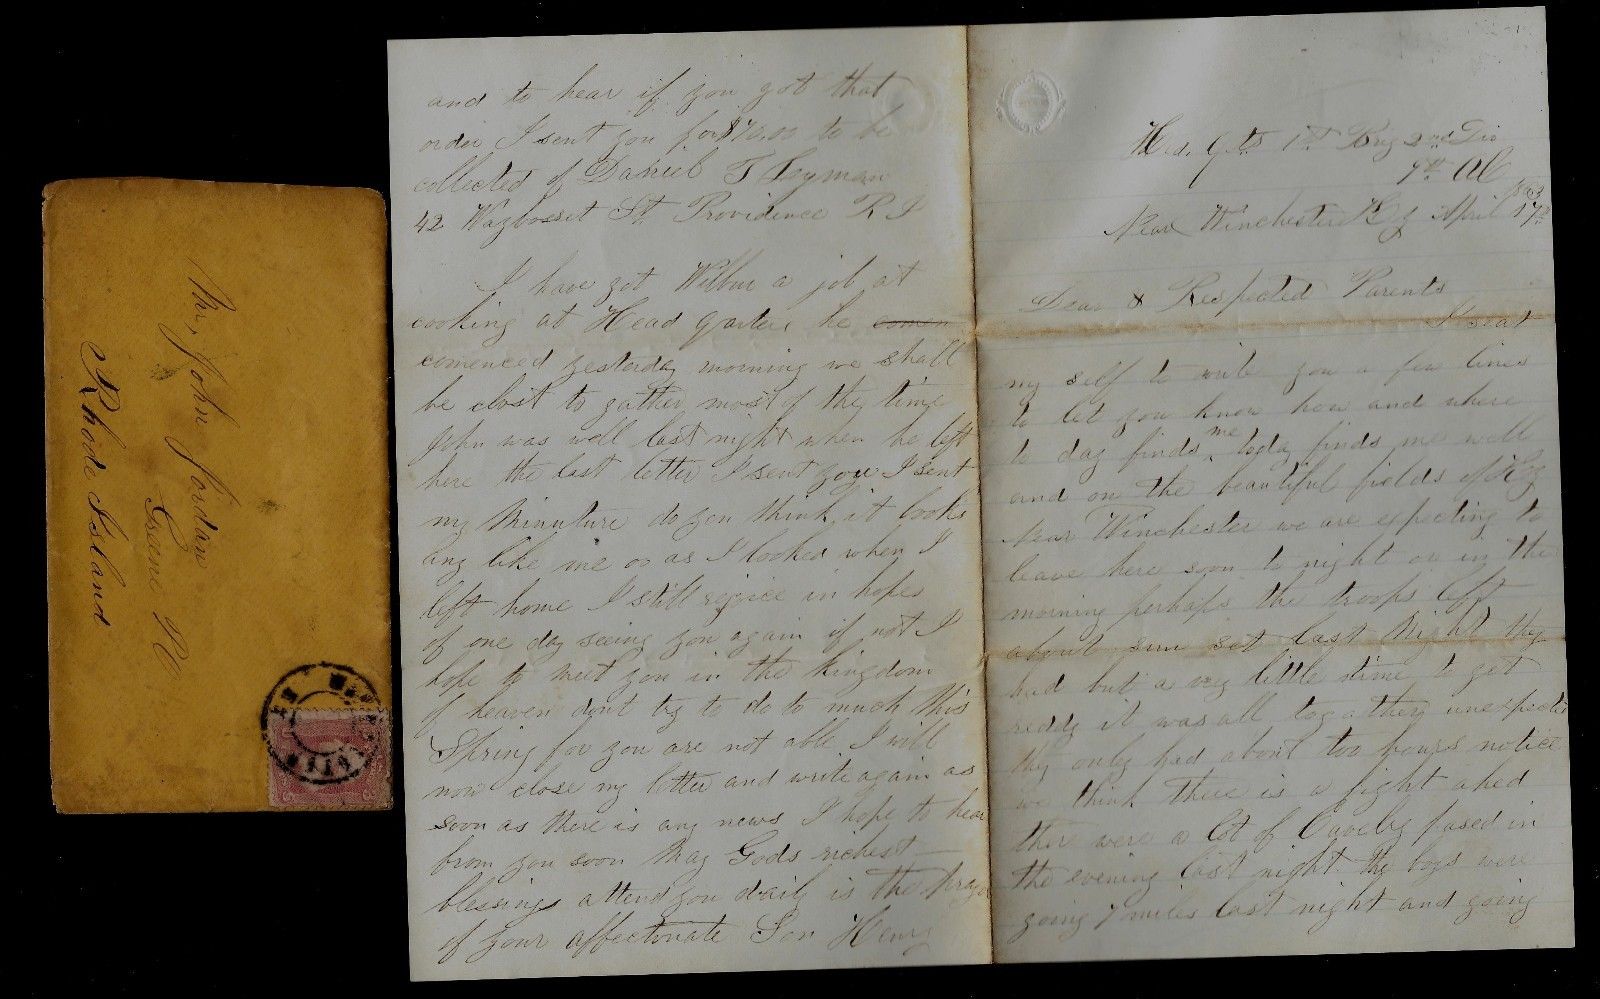 Mr, John Jordan
Greene P.O
Rhode Island
Hed. Q.ts 1st Brig 2nd Div
9th AC
1863
Near Winchester Ky April 17th
Dear & Respected Parents
I seat
my self to write you a few lines
to let you know how and where
to day finds me today finds me well
and on the beautiful fields of Ky
Near Winchester we are expecting to
leave here soon to night or in the
morning perhaps the troops left
about sun set last Night they
had but a very little time to get
reddy it was all togather unexpected
they only had about too hours notice
we think there is a fight ahed
there were a lot of Cavelry pased in
the evening last night. the boys were
going 7 miles last night and going
and to hear if you got that
order I sent you for $70.00 to be
collected of Daniel T Lyman
42 St. Providence R I
I have got Wilbur a job at
cooking at Head Qarters he comen
comenced yesterday morning we shall
be clost to gather most of the time
John was well last night when he left
here the last letter I sent you I sent
my Minuture do you think it looks
any like me or as I looked when I
left home I still rejoice in hopes
of one day seeing you again if not I
hope to meet you in the kingdom
of heaven dont try to do to much this
Spring for you are not able I will
now close my letter and write again as
soon as there is any news I hope to hear
from you soon May Gods richest
blessings attend you daily is the prayer
of your affectonate Son Henry